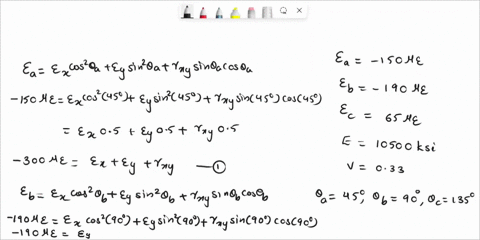 εa = εx cos²θa + εy sin²θa + γxy sinθa cosθa
-150 με = εx cos²(45°) + εy sin²(45°) + γxy sin(45°) cos(45°)
= εx 0.5 + εy 0.5 + γxy 0.5
-300 με = εx + εy + γxy —①
εb = εx cos²θb + εy sin²θb + γxy sinθb cosθb
-190 με = εx cos²(90°) + εy sin²(90°) + γxy sin(90°) cos(90°)
-190 με = εy
εa = -150 με
εb = -190 με
εc = 65 με
E = 10500 ksi
ν = 0.33
θa = 45°, θb = 90°, θc = 135°